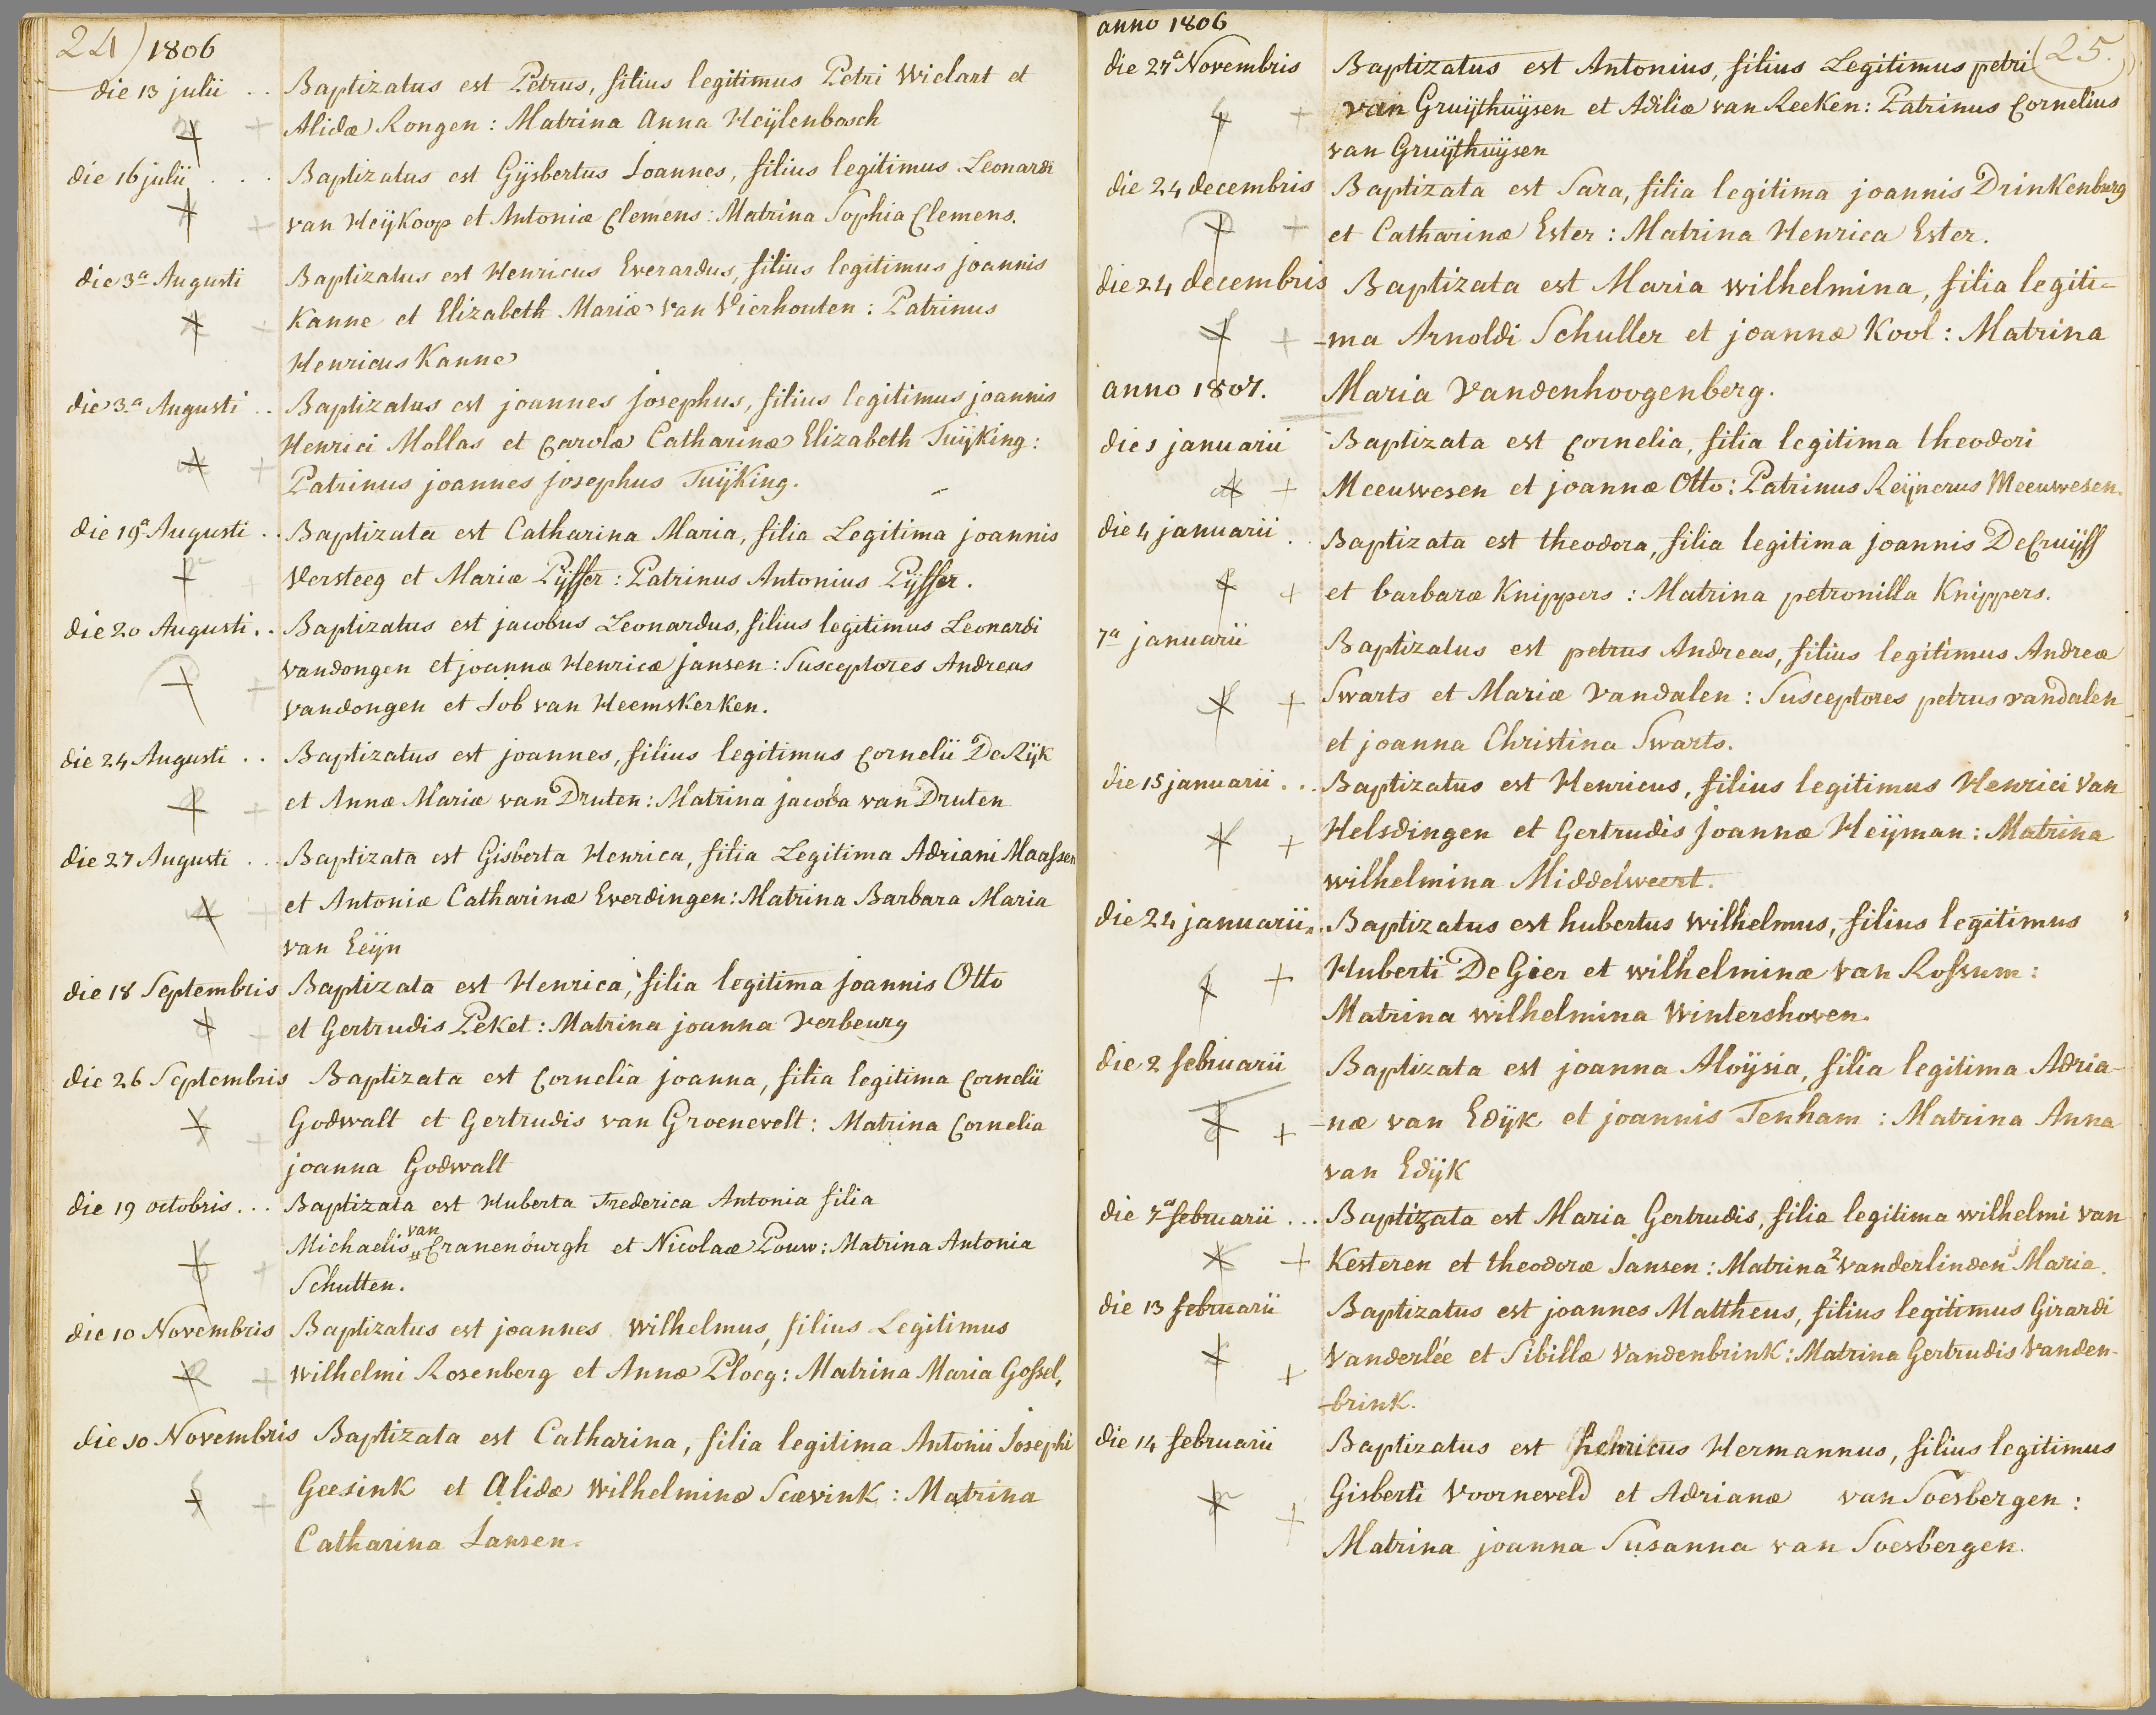 24) 1806
die 13 julii . . Baptizatus est Petrus, filius legitimus Petri Wiclart et
Alidæ Rongen : Matrina Anna Heÿlenbosch
die 16 julii . . . Baptizatus est Gÿsbertus Joannes, filius legitimus Leonardi
van Heÿkoop et Antoniæ Clemens : Matrina Sophia Clemens.
die 3a Augusti Baptizatus est Henricus Everardus, filius legitimus joannis
Kanne et Elizabeth Mariæ van Vierhouten : Patrinus
Henricus Kanne
die 3a Augusti . . Baptizatus est joannes josephus, filius legitimus joannis
Henrici Mollas et Carolæ Catharinæ Elizabeth Tuÿking :
Patrinus joannes josephus Tuÿking.
die 19a Augusti . . Baptizata est Catharina Maria, filia Legitima joannis
Versteeg et Mariæ Pÿffer : Patrinus Antonius Pÿffer.
die 20 Augusti . . Baptizatus est jacobus Leonardus, filius legitimus Leonardi
vandongen et joannæ Henricæ jansen : Susceptores Andreas
vandongen et Job van Heemskerken.
die 24 Augusti . . Baptizatus est joannes, filius legitimus Cornelii De Rÿk
et Annæ Mariæ van Druten : Matrina jacoba van Druten
die 27 Augusti . . Baptizata est Gisberta Henrica, filia Legitima Adriani Maassen
et Antoniæ Catharinæ Everdingen : Matrina Barbara Maria
van Eeÿn
die 18 Septembris Baptizata est Henrica, filia legitima joannis Otto
et Gertrudis Peket : Matrina joanna Verbeurg
die 26 Septembris Baptizata est Cornelia joanna, filia legitima Cornelii
Godwalt et Gertrudis van Groenevelt : Matrina Cornelia
joanna Godwalt
die 19 octobris . . . Baptizata est Huberta Frederica Antonia filia
Michaelis van Cranenburgh et Nicolaæ Pouw : Matrina Antonia
Schutten.
die 10 Novembris Baptizatus est joannes Wilhelmus, filius Legitimus
Wilhelmi Rosenberg et Annæ Ploeg : Matrina Maria Gossel,
die 10 Novembris Baptizata est Catharina, filia legitima Antonii Josephi
Geesink et Alidæ Wilhelminæ Scævink : Matrina
Catharina Jansen.
anno 1806
25.
die 27a Novembris Baptizatus est Antonius, filius Legitimus petri
van Gruÿthuÿsen et Adiliæ van Reeken : Patrinus Cornelius
van Gruÿthuÿsen
die 24 decembris Baptizata est Sara, filia legitima joannis Drinkenburg
et Catharinæ Ester : Matrina Henrica Ester.
die 24 decembris Baptizata est Maria wilhelmina, filia legiti=
-ma Arnoldi Schuller et joannæ Kool : Matrina
anno 1807. Maria Vandenhoogenberg.
die 1 januarii Baptizata est Cornelia, filia legitima theodori
Meeuwesen et joannæ Otto : Patrinus Reÿnerus Meeuwesen.
die 4 januarii . . Baptizata est theodora, filia legitima joannis De Cruÿff
et barbaræ Knippers : Matrina petronilla Knippers.
7a januarii Baptizatus est petrus Andreas, filius legitimus Andreæ
Swarts et Mariæ Vandalen : Susceptores petrus vandalen
et joanna Christina Swarts.
die 15 januarii . . . Baptizatus est Henricus, filius legitimus Henrici Van
Helsdingen et Gertrudis joannæ Heÿman : Matrina
wilhelmina Middelweert.
die 24 januarii . . Baptizatus est hubertus Wilhelmus, filius legitimus
Huberti De Gier et wilhelminæ Van Rossum :
Matrina wilhelmina Wintershoven.
die 2 februarii Baptizata est joanna Aloÿsia, filia legitima Adria-
-næ van Edÿk et joannis Tenham : Matrina Anna
van Edÿk
die 7a februarii . . . Baptizata est Maria Gertrudis, filia legitima wilhelmi van
Kesteren et theodoræ Jansen : Matrina 2 vanderlinden 1 Maria.
die 13 februarii Baptizatus est joannes Mattheus, filius legitimus Girardi
Vanderlée et Sibillæ Vandenbrink : Matrina Gertrudis Vanden-
-brink.
die 14 februarii Baptizatus est henricus Hermannus, filius legitimus
Gisberti Voorneveld et Adrianæ van Soesbergen :
Matrina joanna Susanna van Soesbergen.